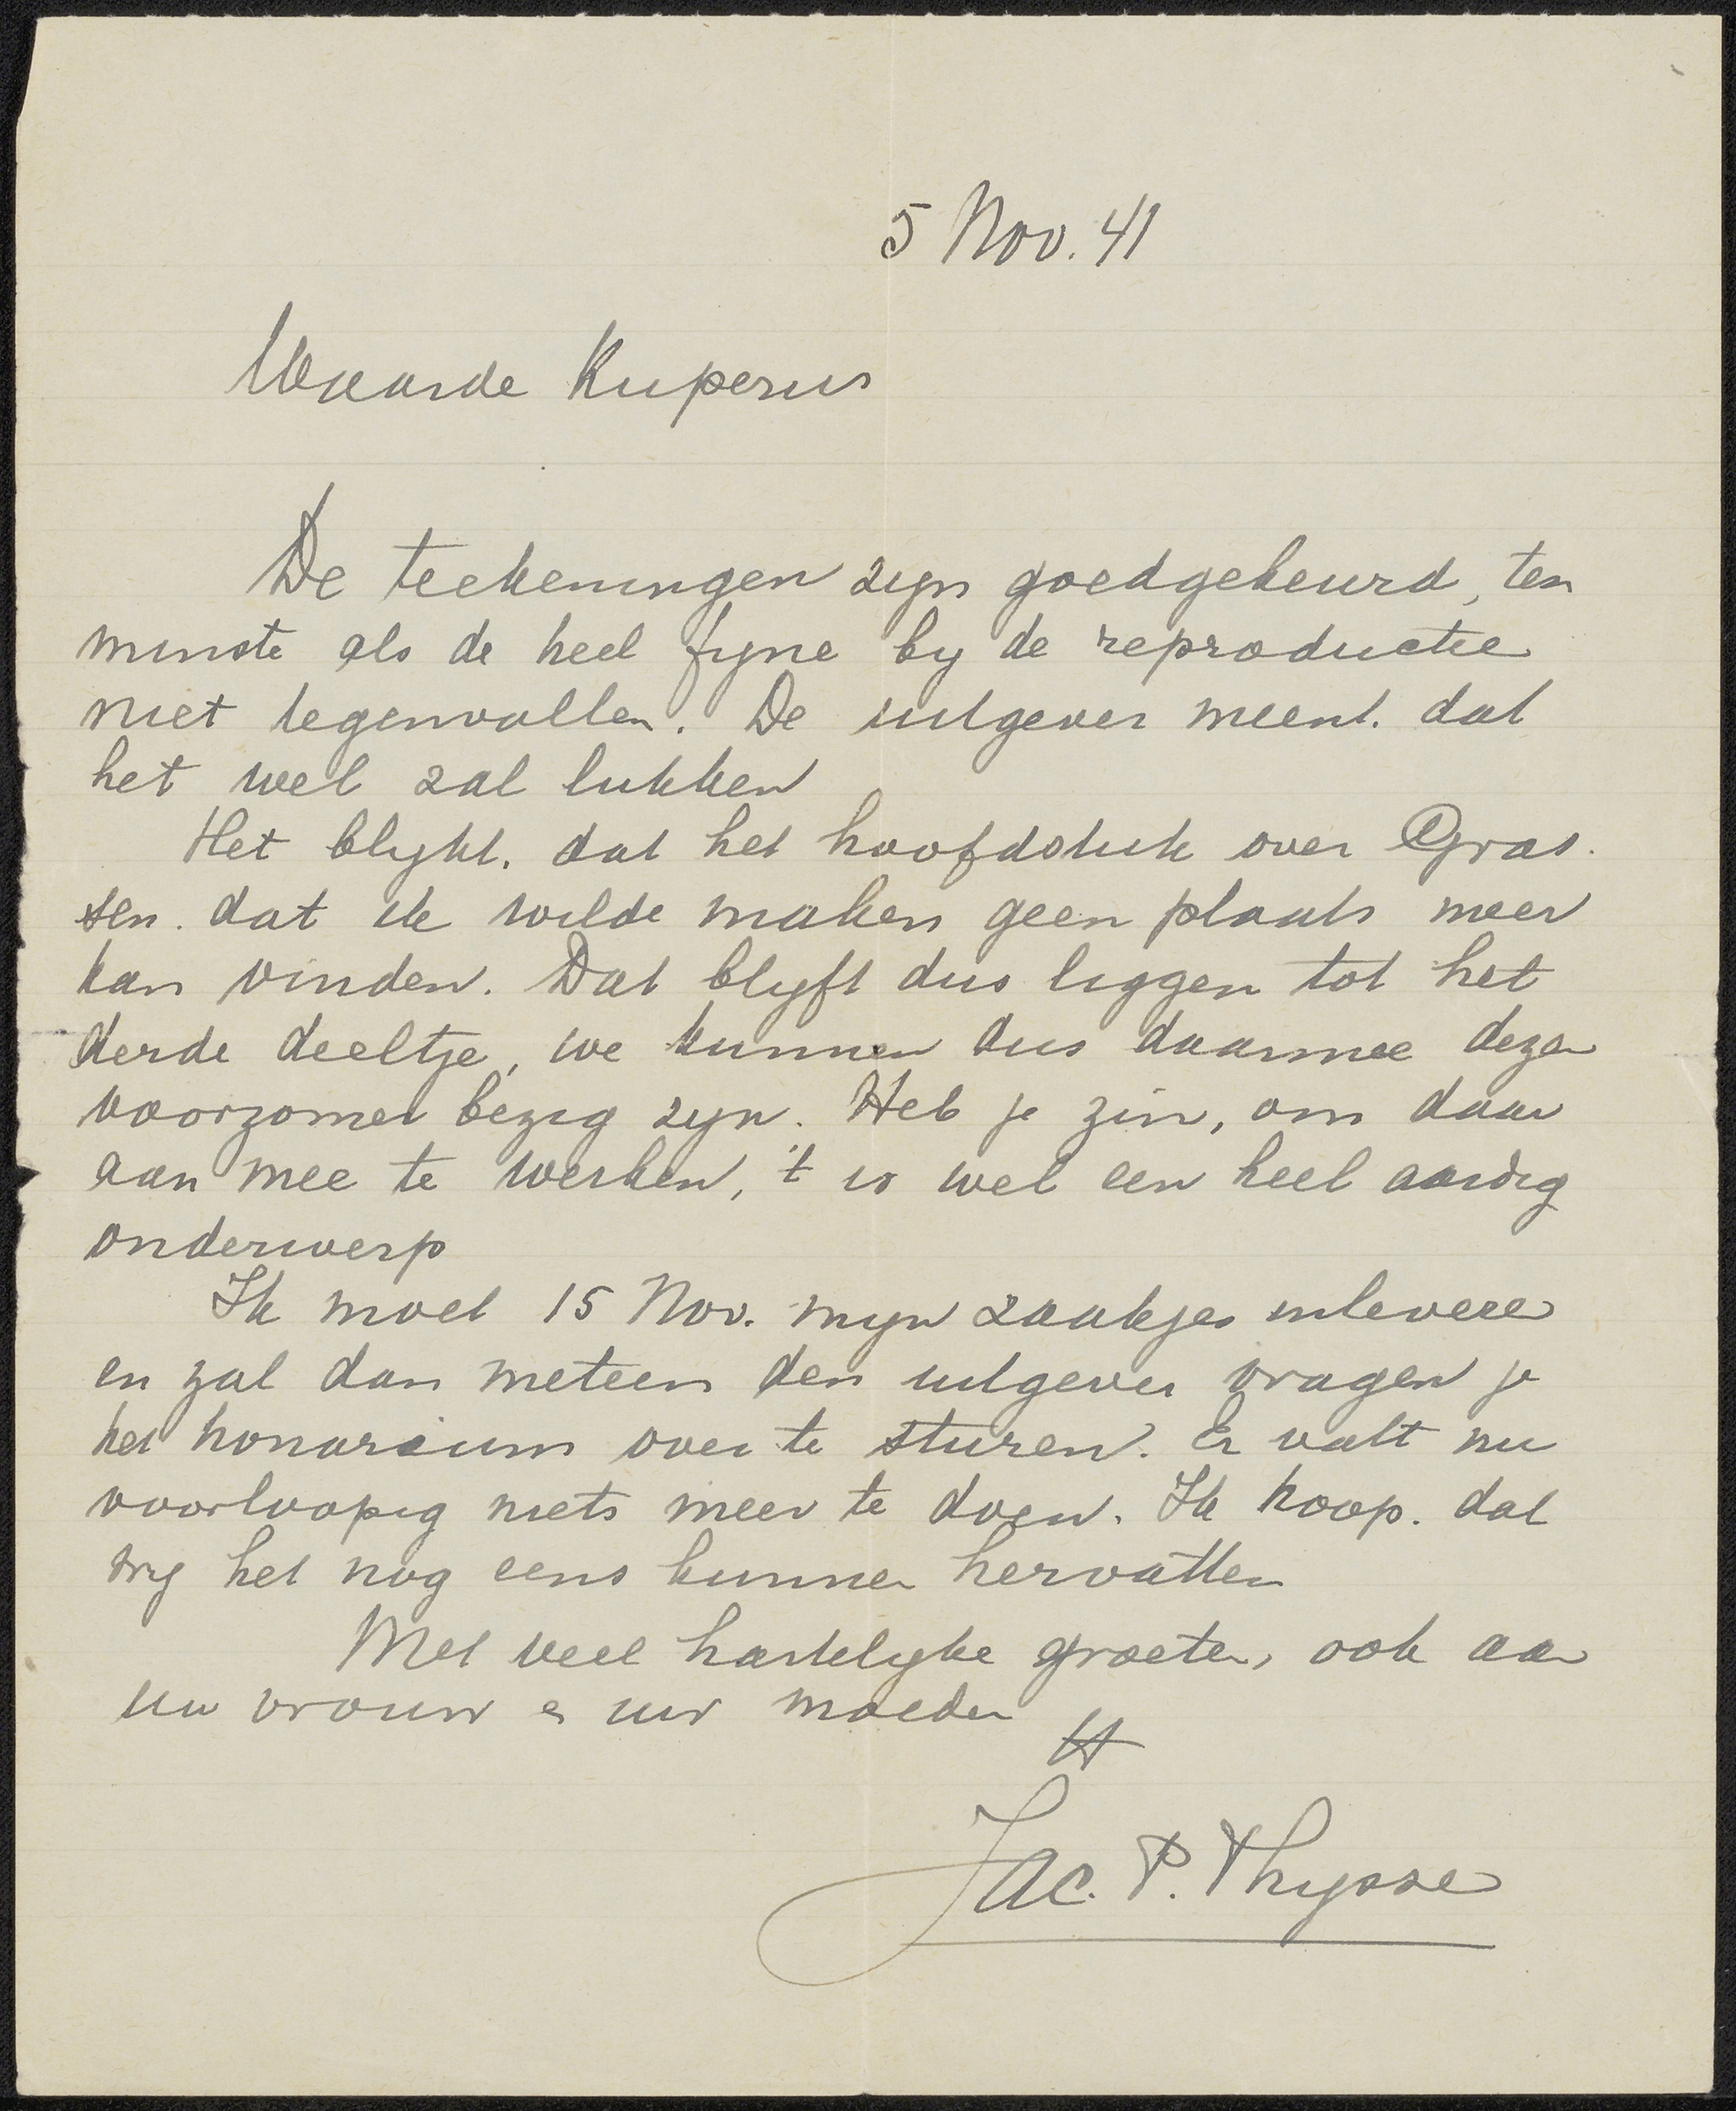 5 Nov. 41
Waarde Kuperus
De teekeningen zyn goedgekeurd, ten
minste als de heel fyne by de reproductie
niet tegenvallen. De uitgever meent. dat
het wel zal lukken
Het blykt. dat het hoofdstuk over Gras-
sen. dat ik wilde maken geen plaats meer
kan vinden. Dat blyft dus liggen tot het
derde deeltje, we kunnen dus daarmee dezen
voorzomer bezig zyn. Heb je zin, om daar
aan mee te werken, 't is wel een heel aardig
onderwerp
Ik moet 15 Nov. myn zaakjes inleveren
en zal dan meteen den uitgever vragen je
het honorarium over te sturen. Er valt nu
voorloopig niets meer te doen. Ik hoop. dat
wy het nog eens kunnen hervatten
Met veel hartelyke groeten, ook aan
uw vrouw en uw moeder
tt
Jac. P. Thysse